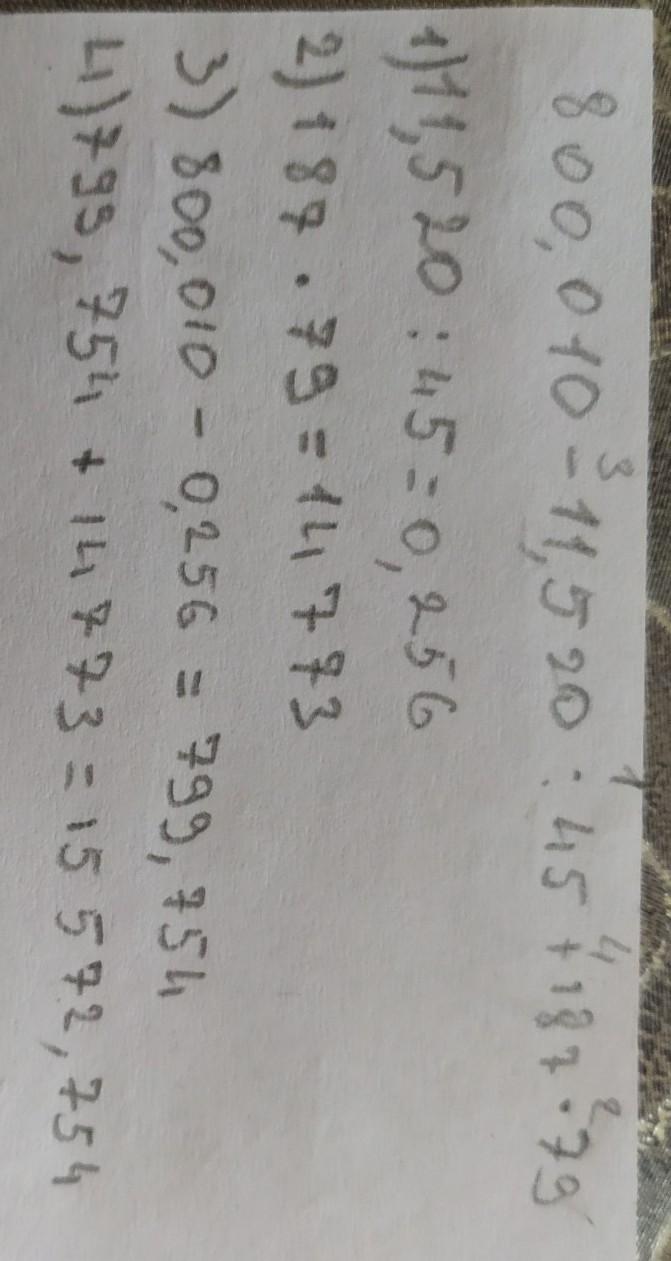 800,010 - 11,520 : 45 + 187 · 79
3 1 4 2
1) 11,520 : 45 = 0,256
2) 187 · 79 = 14773
3) 800,010 - 0,256 = 799,754
4) 799,754 + 14773 = 15 572,754